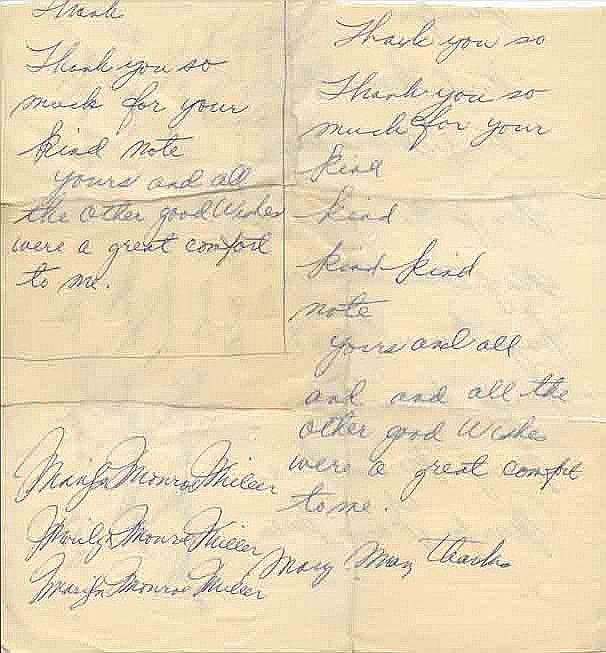 Thank
Thank you so
much for your
kind note
yours and all
the other good Wishes
were a great comfort
to me.
Marilyn Monroe Miller
Marilyn Monroe Miller
Marilyn Monroe Miller
Thank you so
Thank you so
much for your
kind
kind
kind kind
note
yours and all
and and all the
other good Wishes
were a great comfort
to me.
Many Many thanks